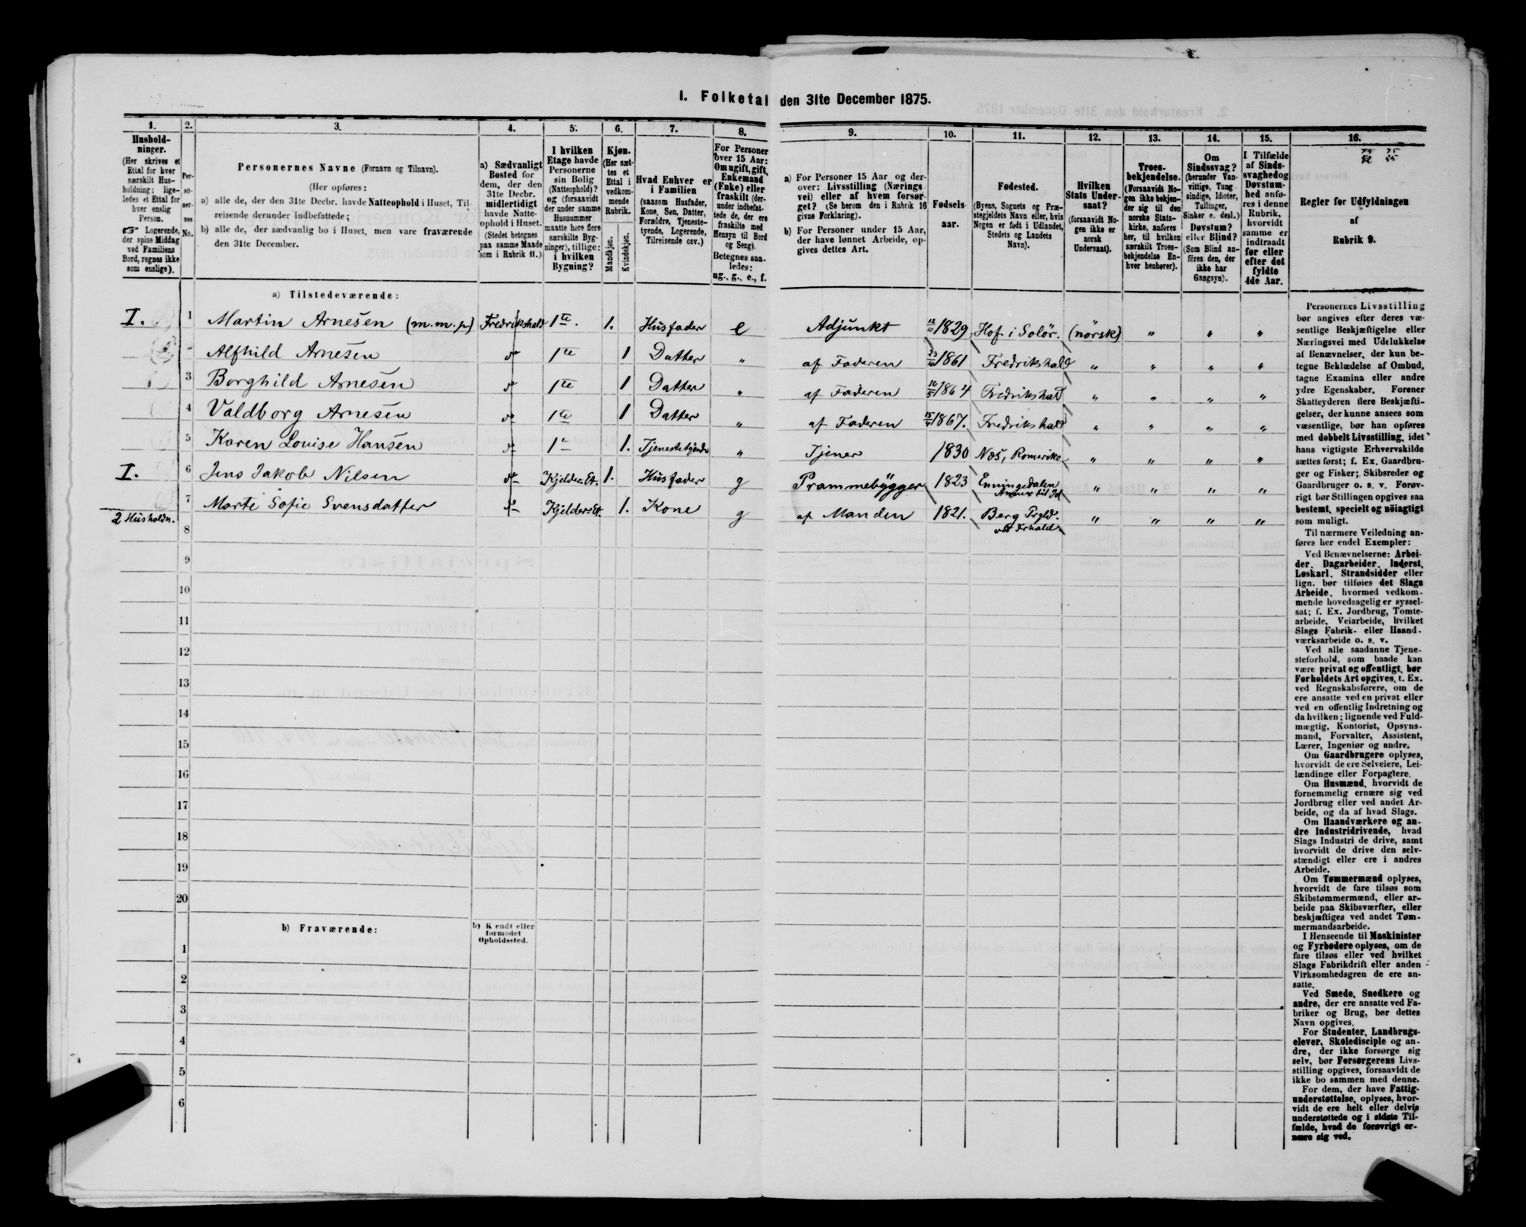 I. Folketal den 31te December 1875.
1. 2. 3. 4. 5. 6. 7. 8. 9. 10. 11. 12. 13. 14. 15. 16.
Hushold-
ninger.
(Her skrives et
Ettal for hver
særskilt Hus-
holdning; lige-
ledes et Ettal for
hver enslig
Person.
☞ Logerende,
der spise Middag
ved Familiens
Bord, regnes ikke
som enslige).
Per-
so-
ner-
nes
No.
Personernes Navne (Fornavn og Tilnavn).
(Her opføres:
a) alle de, der den 31te Decbr. havde Natteophold i Huset, Til-
reisende derunder indbefattede;
b) alle de, der sædvanlig bo i Huset, men vare fraværende
den 31te December.
a) Sædvanligt
Bosted for
dem, der den
31te Decbr.
midlertidigt
havde Natte-
ophold i Huset.
(Stedet betegnes
paa samme Maade
som i Rubrik 11.)
I hvilken
Etage havde
Personerne
sin Bolig
(Natteophold)?
og (forsaavidt
der under samme
Husnummer
maatte høre flere
særskilte Byg-
ninger), tillige:
i hvilken
Bygning?
Kjøn.
(Her sæt-
tes et
Ettal i
vedkom-
mende
Rubrik.
Mandkjøn.
Kvindekjøn.
Hvad Enhver er
i Familien
(saasom Husfader,
Kone, Søn, Datter,
Forældre, Tjeneste-
tyende, Logerende,
Tilreisende osv.)
For Personer
over 15 Aar:
Om ugift, gift,
Enkemand
(Enke) eller
fraskilt (der-
under indbefat-
tede de, der ere
fraskilte med
Hensyn til Bord
og Seng).
Betegnes saa-
ledes:
ug., g., e., f.
a) For Personer 15 Aar og der-
over: Livsstilling (Nærings
vei) eller af hvem forsør-
get? (Se herom den i Rubrik 16
givne Forklaring).
b) For Personer under 15 Aar,
der have lønnet Arbeide, op-
gives dettes Art.
Fødsels-
aar.
Fødested.
(Byens, Sognets og Præ-
stegjeldets Navn eller, hvis
Nogen er født i Udlandet,
Stedets og Landets
Navn).
Hvilken
Stats Under-
saat?
(forsaavidt No-
gen ikke er
norsk
Undersaat).
Troes-
bekjendelse.
(Forsaavidt No-
gen ikke bekjen-
der sig til den
norske Stats-
kirke, anføres
her, til hvilken
særskilt Troes-
bekjendelse En-
hver henhører).
Om
Sindssvag?
(herunder Van-
vittige, Tung-
sindige, Idioter,
Tullinger,
Sinker o. desl.)
Døvstum?
eller Blind?
(Som Blind an-
føres den, der
ikke har
Gangsyn).
I Tilfælde
af Sinds-
svaghed og
Døvstum-
hed anfø-
res i denne
Rubrik,
hvorvidt
samme er
indtraadt
før eller
efter det
fyldte
4de Aar.
Regler for Udfyldningen
af
Rubrik 9.
a) Tilstedeværende:
I. 1 Martin Arnesen (m.m.p.) Fredrikshald 1te. 1. Husfader e Adjunkt 1829 Hof i Solör. (nörsk) " " "
Alfhild Arnesen do 1te 1 Datter " af Faderen 1861 Fredrikshald " " "
3 Borghild Arnesen do 1te 1 Datter " af Faderen 1864 Fredrikshald " " "
4 Valdborg Arnesen do 1te 1 Datter " af Faderen 1867. Fredrikshald " " "
5 Karen Louise Hansen do 1. Tjenestetyende " Tjener 1830 Næs, Romerike " " "
I. 6 Jens Jakob Nilsen do Kjelder Et. 1. Husfader g Prammebygger 1823 Enningedalen
Annex til Id " " "
7 Marte Sofie Svensdatter do Kjelder Et. 1. Kone g af Manden 1821. Berg Prgld.
" " "
2 Husholdn.
8
9
10
11
12
13
14
15
16
17
18
19
20
b) Fraværende:
b) Kjendt eller
formodet
Opholdssted.
1
2
3
4
5
6
Personernes Livsstilling
bør angives efter deres væ-
sentlige Beskjæftigelse eller
Næringsvei med Udelukkelse
af Benævnelser, der kun be-
tegne Beklædelse af Ombud,
tagne Examina eller andre
ydre Egenskaber. Forener
Skatteyderen flere Beskjæfti-
gelser, der kunne ansees som
væsentlige, bør han opføres
med dobbelt Livsstilling, idet
hans vigtigste Erhvervskilde
sættes først; f. Ex. Gaardbru-
ger og Fisker; Skibsreder og
Gaardbruger o. s. v. Forøv-
rigt bør Stillingen opgives saa
bestemt, specielt og nöiagtigt
som muligt.
Til nærmere Veiledning an-
føres her endel Exempler:
Ved Benævnelserne: Arbei-
der, Dagarbeider, Inderst,
Løskarl, Strandsidder eller
lign. bør tilføies det Slags
Arbeide, hvormed vedkom-
mende hovedsagelig er syssel-
sat; f. Ex. Jordbrug, Tomte-
arbeide, Veiarbeide, hvilket
Slags Fabrik- eller Haand-
værksarbeide o. s. v.
Ved alle saadanne Tjene-
steforhold, som baade kan
være privat og offentligt, bør
Forholdets Art opgives, t. Ex.
ved Regnskabsførere, om de
ere ansatte ved en privat eller
ved en offentlig Indretning og
da hvilken; lignende ved Fuld-
mægtig, Kontorist, Opsyns-
mand, Forvalter, Assistent,
Lærer, Ingeniør og andre.
Om Gaardbrugere oplyses,
hvorvidt de ere Selveiere, Lei-
lændinge eller Forpagtere.
Om Husmænd, hvorvidt de
fornemmelig ernære sig ved
Jordbrug eller ved andet Ar-
beide, og da af hvad Slags.
Om Haandværkere og an-
dre Industridrivende, hvad
Slags Industri de drive, samt
hvorvidt de drive den selv-
stændigt eller ere i andres
Arbeide.
Om Tømmermænd oplyses,
hvorvidt de fare tilsøs som
Skibstømmermænd, eller ar-
beide paa Skibsværfter, eller
beskjæftiges ved andet Tøm-
mermandsarbeide.
I Henseende til Maskinister
og Fyrbødere oplyses, om de
fare tilsøs eller ved hvilket
Slags Fabrikdrift eller anden
Virksomhedsgren de ere an-
satte.
Ved Smede, Snedkere og
andre, der ere ansatte ved Fa-
briker og Brug, bør dettes
Navn opgives.
For Studenter, Landbrugs-
elever, Skoledisciple og an-
dre, der ikke forsørge sig
selv, bør Forsørgerens Livs-
stilling opgives, forsaavidt de
ikke bo sammen med denne.
For dem, der have Fattig-
understøttelse, oplyses, hvor-
vidt de ere helt eller delvis
understøttede og i sidste Til-
fælde, hvad de forøvrigt er-
nære sig ved.